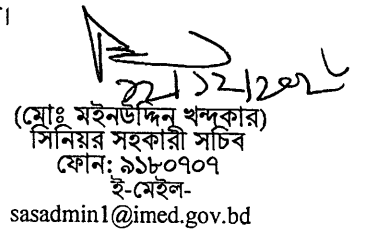 (মোঃ মইনউদ্দিন খন্দকার)
সিনিয়র সহকারী সচিব
ফোন: ৯১৮০৭০৭
ই-মেইল-
sasadmin1@imed.gov.bd